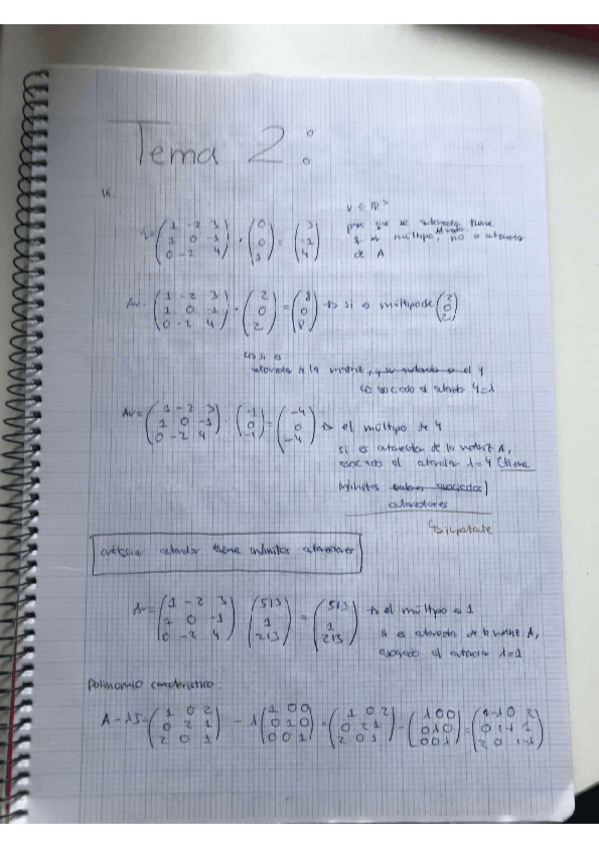 Tema 2:
A=(1 -2 3 / 1 0 -1 / 0 -2 4) · (0 / 0 / 1) = (3 / -1 / 4)
v ∈ ℝ³
para que se autovector tiene
q es múltiplo, no
de A
Av= (1 -2 3 / 1 0 -1 / 0 -2 4) · (2 / 0 / 2) = (8 / 0 / 8) → si es múltiplo de (2 / 0 / 2)
↳ si es
a la matriz,
↳ asociado al 4=λ
Av= (1 -2 3 / 1 0 -1 / 0 -2 4) · (-1 / 0 / -1) = (-4 / 0 / -4) → el múltipo de 4
si es autovector de la matriz A,
asociado al autovalor λ=4 (tiene
infinitos
autovectores
↳ importante
autovalor tiene infinitos autovectores
Av= (1 -2 3 / 1 0 -1 / 0 -2 4) (5/3 / 1 / 2/3) = (5/3 / 1 / 2/3) → el múltipo es 1
si es autovector de la matriz A,
asociado al autovalor λ=1
Polinomio característico:
A - λI = (1 0 2 / 0 2 1 / 2 0 1) - λ(1 0 0 / 0 1 0 / 0 0 1) = (1 0 2 / 0 2 1 / 2 0 1) - (λ 0 0 / 0 λ 0 / 0 0 λ) = (1-λ 0 2 / 0 2-λ 1 / 2 0 1-λ)